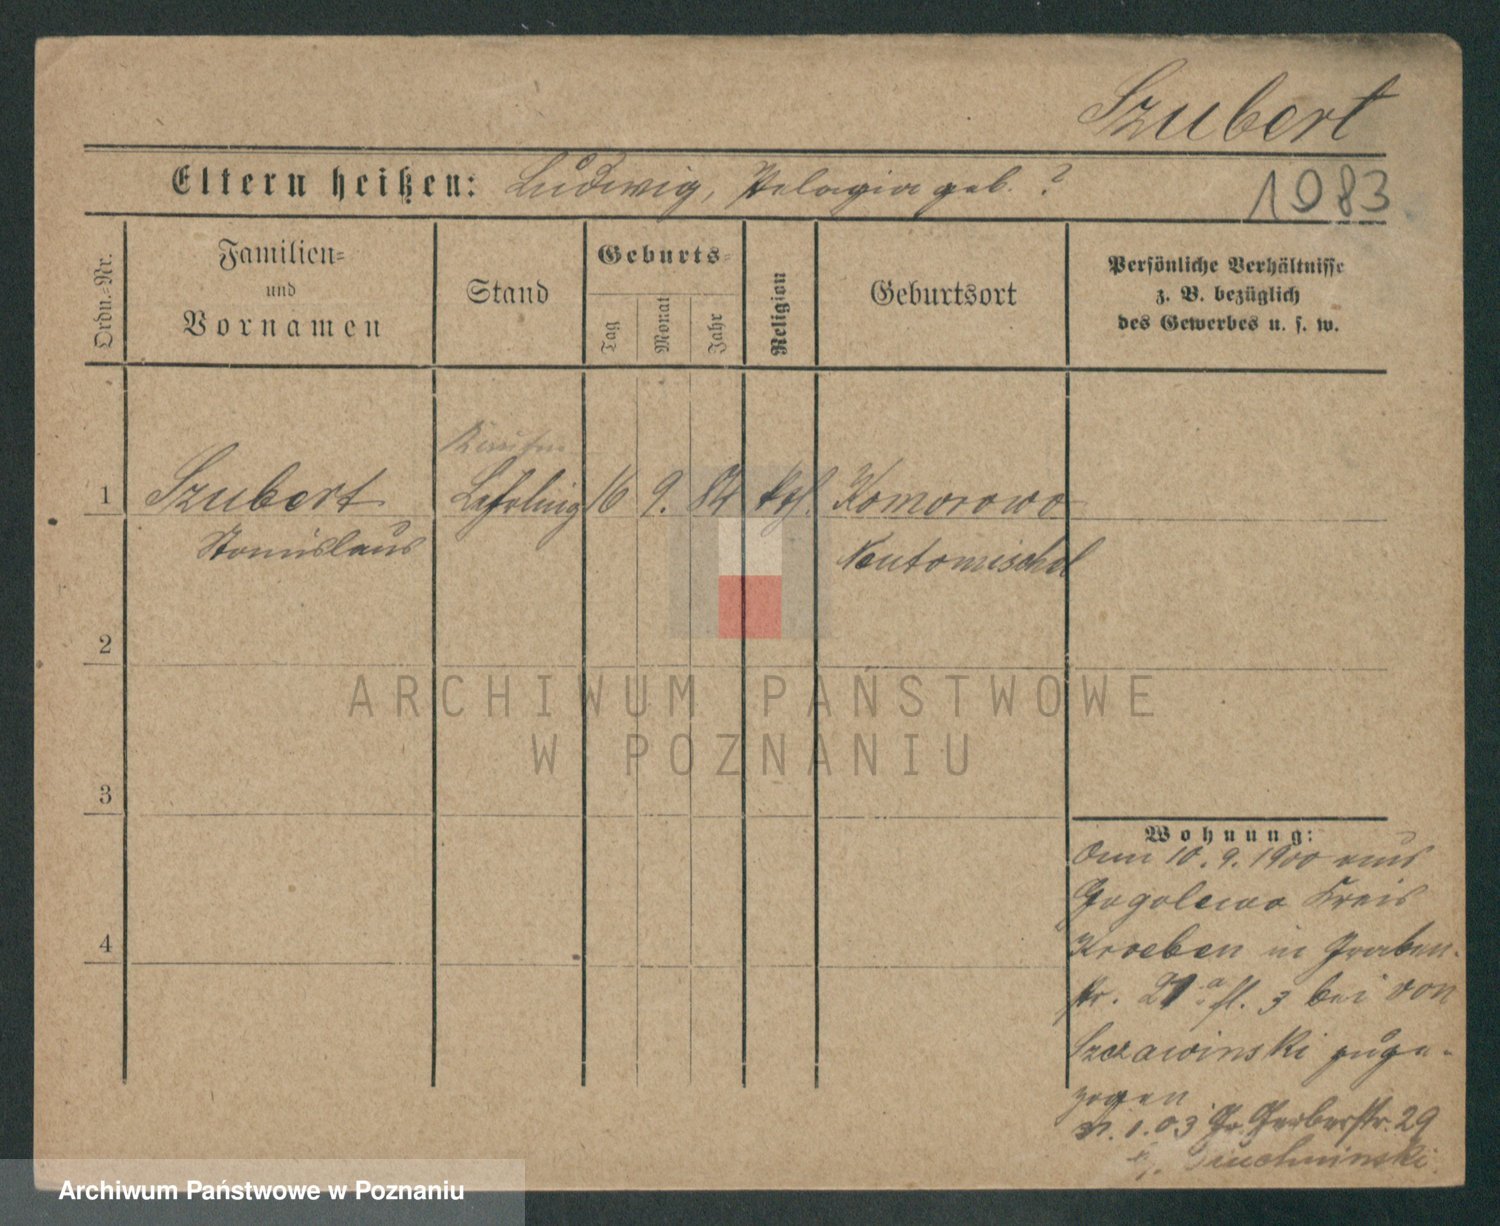 Szubert
Eltern heißen: Ludwig, Pelagia geb. ?
1983
Ordn.-Nr.
Familien-
und
Vornamen
Stand
Geburts-
Tag
Monat
Jahr
Religion
Geburtsort
Persönliche Verhältnisse
z. B. bezüglich
des Gewerbes u. s. w.
1 Szubert Lehrling 16 9. 84 kth. Komorowo
Stanislaus Neutomischel
2
ARCHIWUM PAŃSTWOWE
W POZNANIU
3
Wohnung:
10. 9. 1900 aus
Gogolewo Kreis
Kroeben in Graben-
str. 21 a fl. 3 bei von
Szczawinski zuge-
zogen
1. 03 Gr. Gerberstr. 29
4
Archiwum Państwowe w Poznaniu